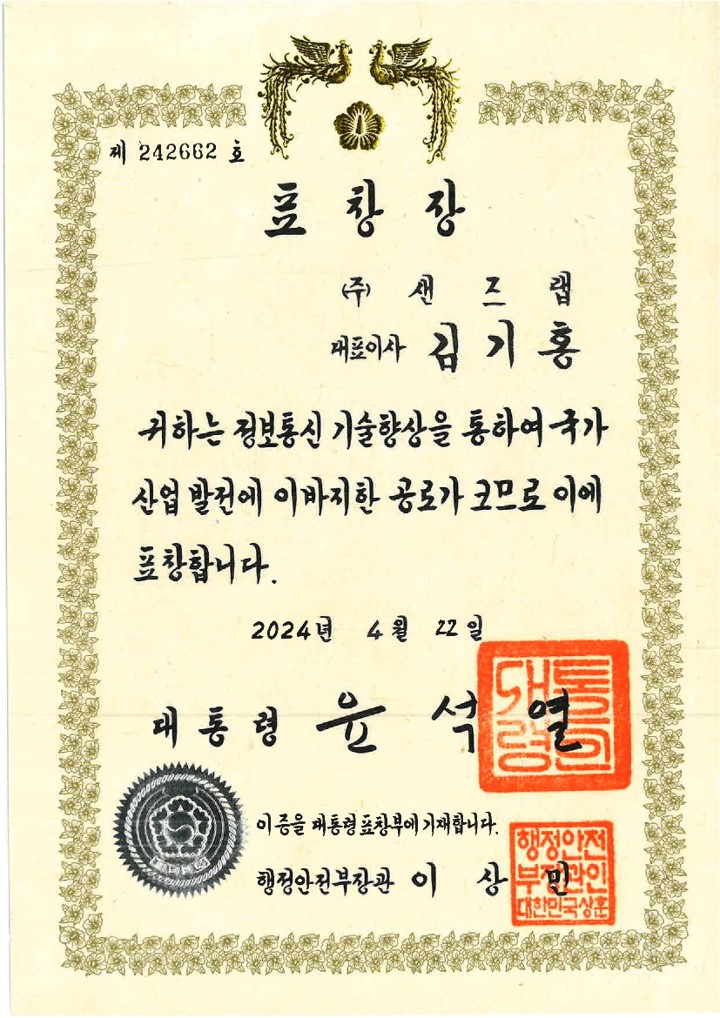 제 242662 호
표 창 장
(주) 샌 즈 랩
대표이사 김 기 홍
귀하는 정보통신 기술향상을 통하여 국가
산업 발전에 이바지한 공로가 크므로 이에
표창합니다.
2024년 4월 22일
대 통 령 윤 석 열
대통령의인
이 증을 대통령표창부에 기재합니다.
행정안전부장관 이 상 민
행정안전
부장관인
대한민국상훈